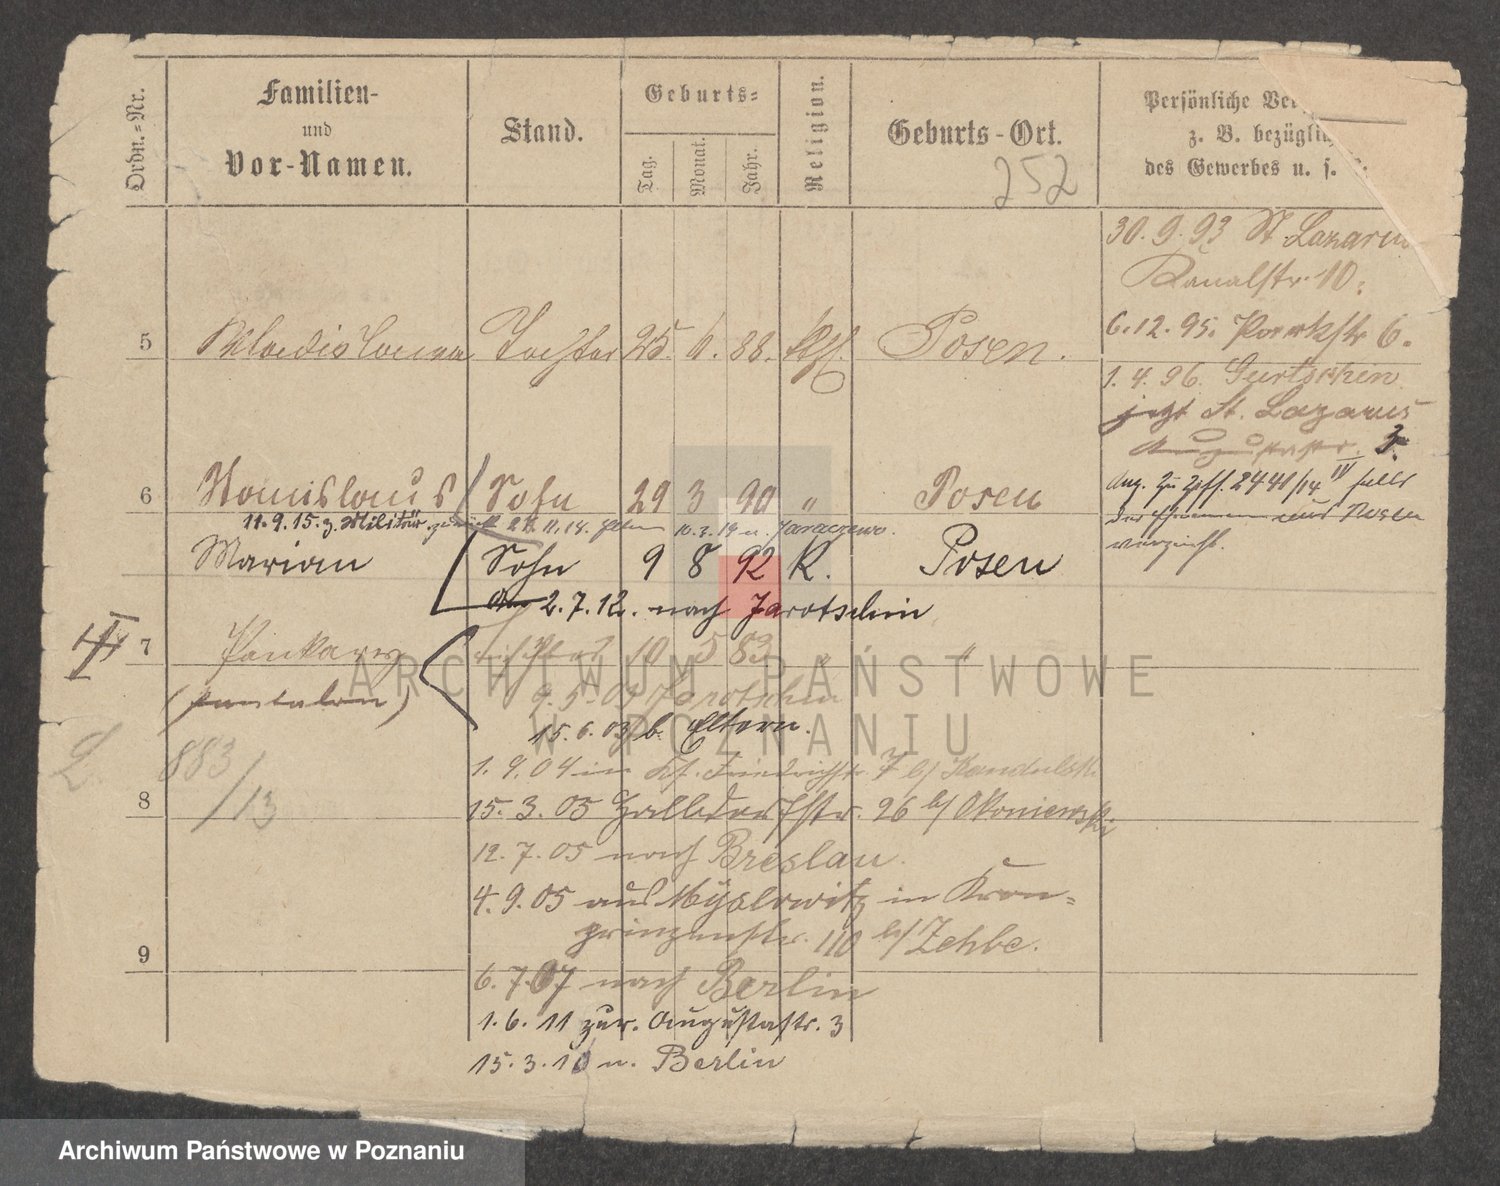 Ordn.-Nr.
Familien-
und
Vor-Namen.
Stand.
Geburts-
Tag.
Monat.
Jahr.
Religion.
Geburts-Ort.
252
Persönliche
z. B.
des Gewerbes u. s.
30. 9. 93 St. Lazarus
Kanalstr. 10.
5 Wladislawa Tochter 25. 6. 88. Kath. Posen.
6. 12. 95. Parkstr 6.
1. 4. 96. Gurtschin
jetzt St. Lazarus
Augustastr. 3.
6 Stanislaus Sohn 29 3 90 " Posen
11. 9. 15. z. Militär 10. 3. 19 n. Jaraczewo.
2441/14 IV
aus Posen
verzieht.
Marian Sohn 9 8 92 K. Posen
2. 7. 12. nach Jarotschin
7 Pankarz 10 5 83 "
(Pantaleon) 9. 5. 03 Jarotschin
15. 6. 03 b. Eltern.
L. 883/13
1. 9. 04 in Kl. Friedrichstr. 7 b/ Kandulski
8 15. 3. 05 Halbdorfstr. 26 b/ Okoniewski
12. 7. 05 nach Breslau.
4. 9. 05 aus Myslowitz in Kron-
prinzenstr. 110 b/ Zehbe.
9
6. 7. 07 nach Berlin
1. 6. 11 zur. Augustastr. 3
15. 3. 10 n. Berlin
ARCHIWUM PAŃSTWOWE
W POZNANIU
Archiwum Państwowe w Poznaniu